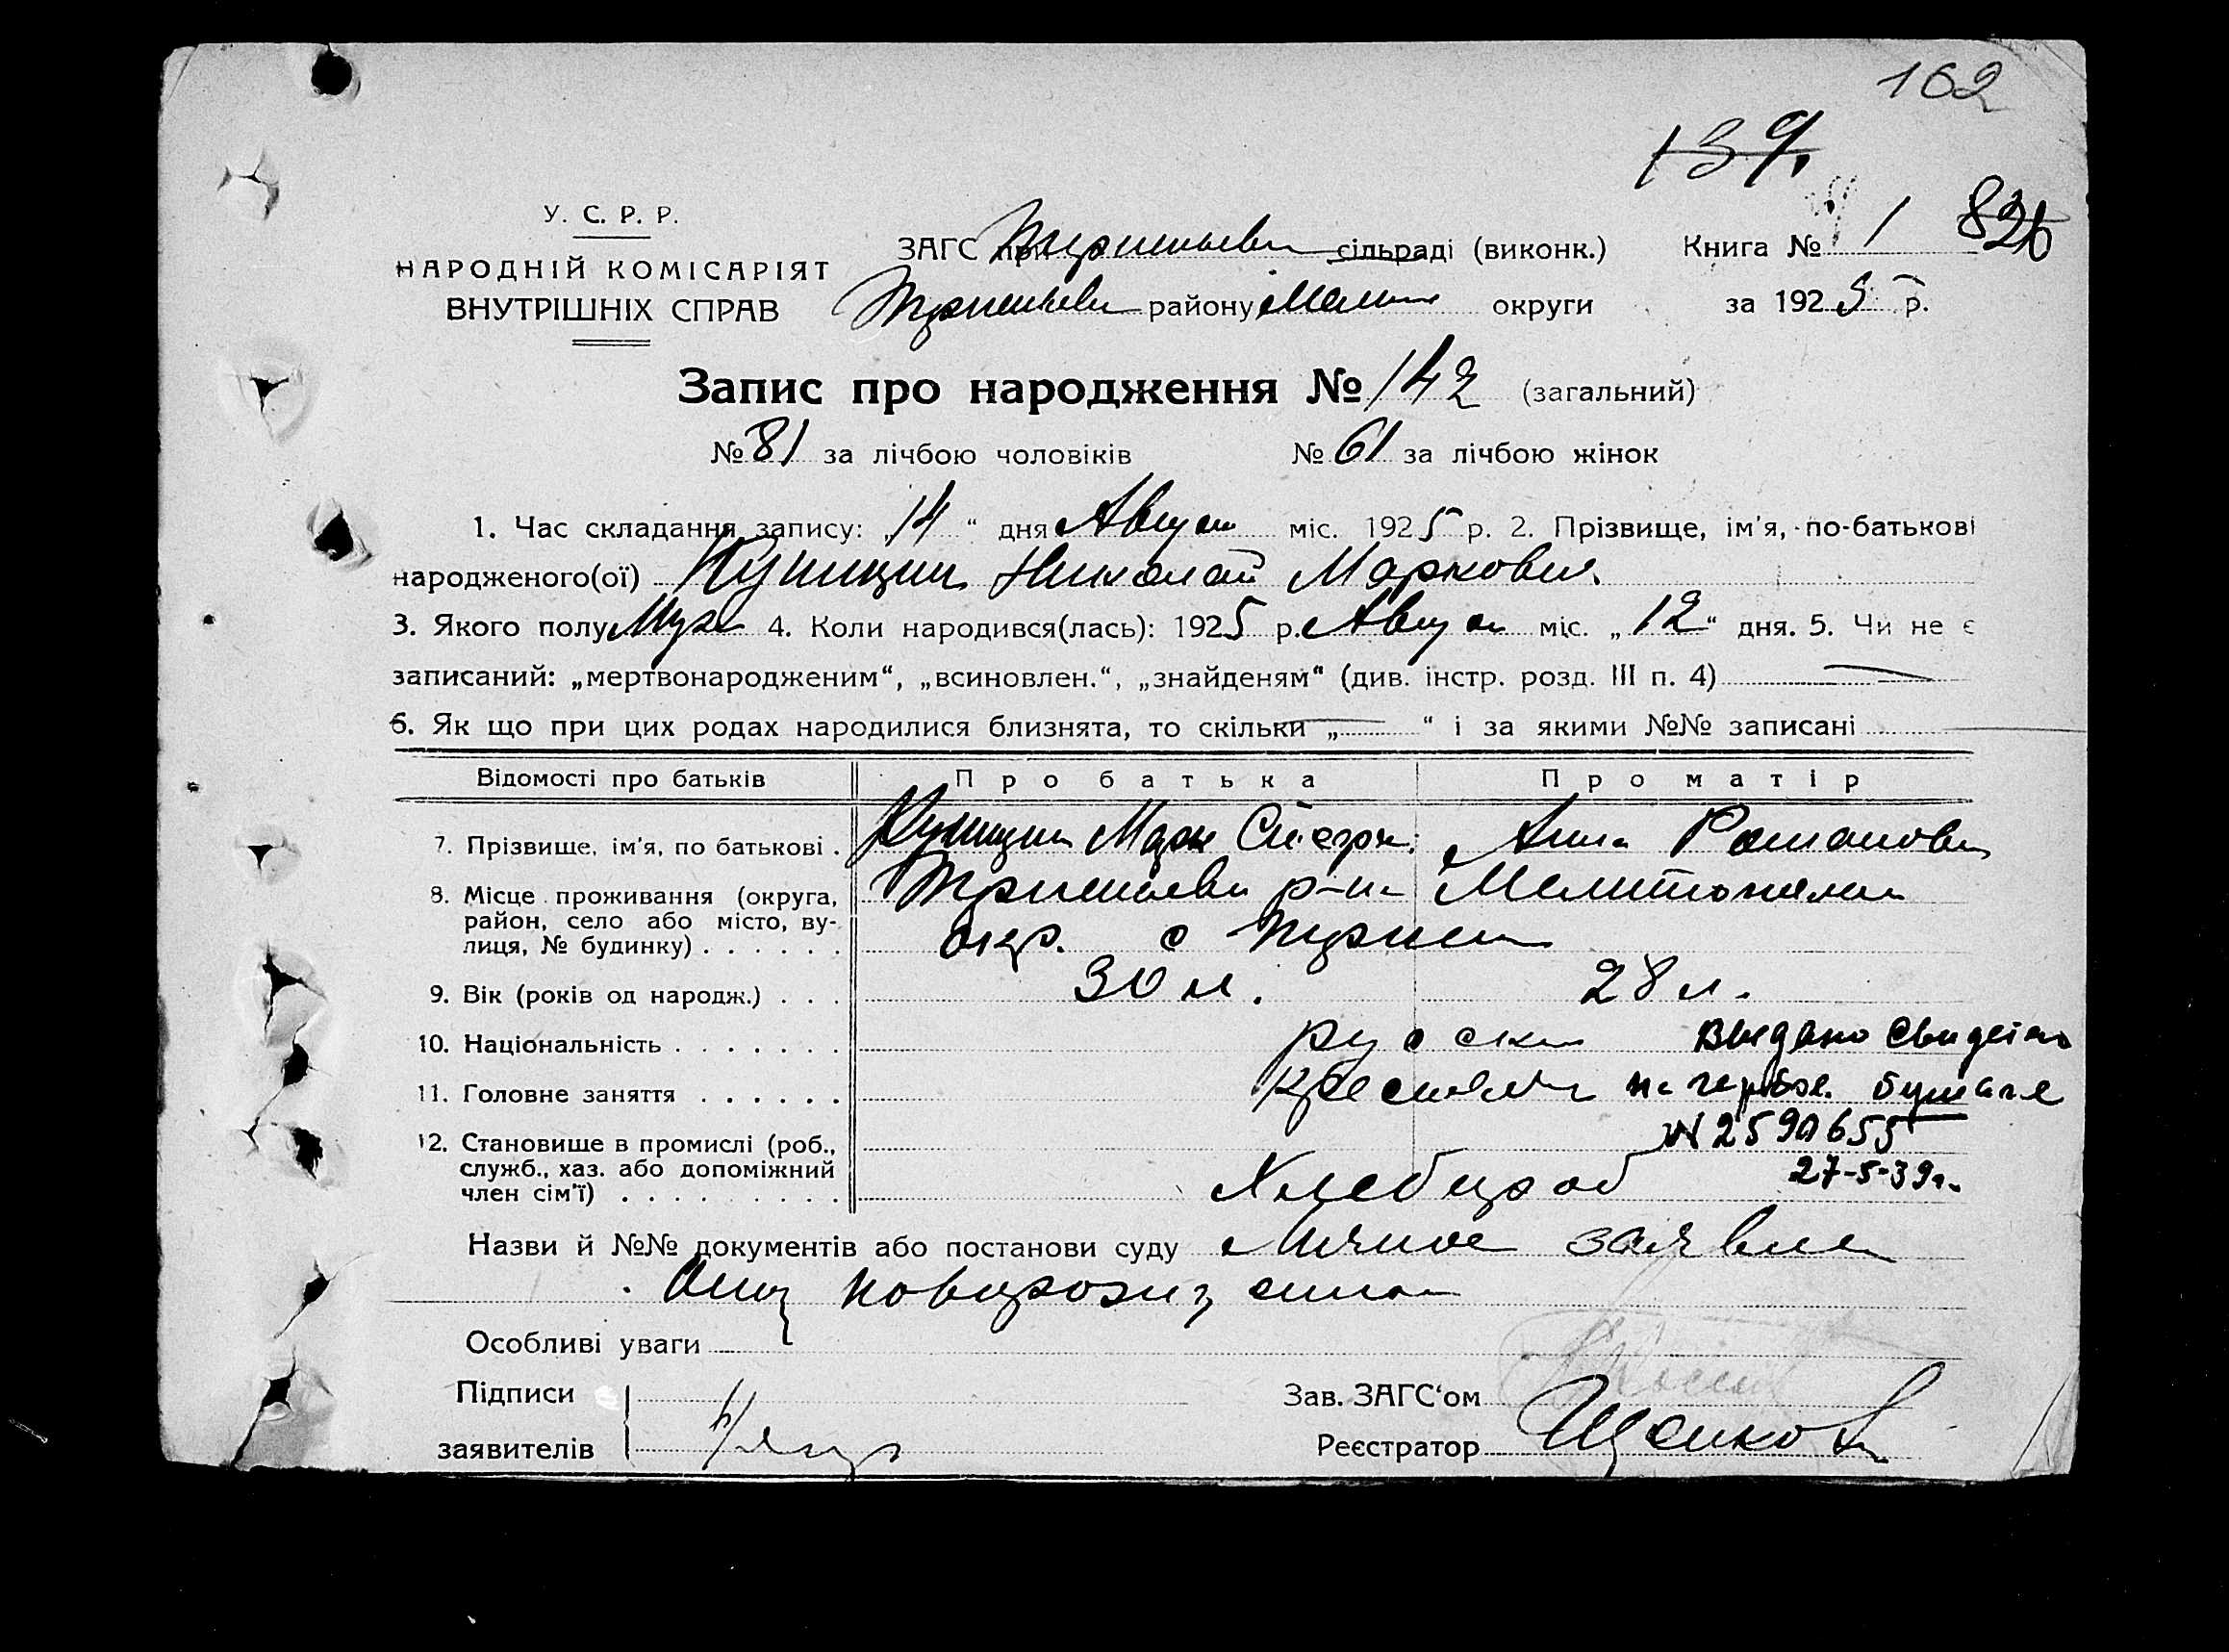 162
139
У. С. Р. Р.
НАРОДНІЙ КОМІСАРІЯТ
ВНУТРІШНІХ СПРАВ
ЗАГС при сільраді (виконк.) Книга № 1 826
району Мелит округи за 1925 р.
Запис про народження № 142 (загальний)
№ 81 за лічбою чоловіків № 61 за лічбою жінок
1. Час складання запису: „14“ дня Август міс. 1925 р. 2. Прізвище, ім'я, по-батькові
народженого(ої) Куницин Николай Маркович
3. Якого полу Муж 4. Коли народився(лась): 1925 р. Август міс. „12“ дня. 5. Чи не є
записаний: „мертвонародженим“, „всиновлен.“, „знайденям“ (див. інстр. розд. III п. 4)
6. Як що при цих родах народилися близнята, то скільки „ “ і за якими №№ записані
Відомості про батьків Про батька Про матір
7. Прізвище, ім'я, по батькові . Куницин Марк Анна Романовн
8. Місце проживання (округа, р-на Мелитопольск
район, село або місто, ву-
лиця, № будинку) . . . . . . окр. с
9. Вік (років од народж.) . . . 30 л. 28 л.
10. Національність . . . . . . . русски Выдано Свидет
11. Головне заняття . . . . . . на гербов. бумаге
12. Становище в промислі (роб., № 2590655
служб., хаз. або допоміжний 27-5-39г.
член сім'ї) . . . . . . . . . Хлебороб
Назви й №№ документів або постанови суду Личное заявлен
Особливі уваги
Підписи Зав. ЗАГС'ом
заявителів Реєстратор